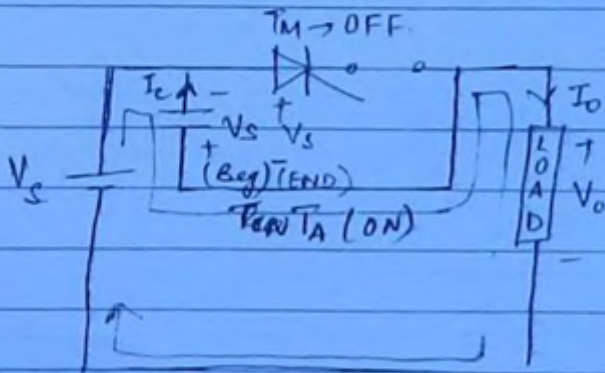 TM → OFF.
Ic - +
Vs Vs
+ (Beg) - (END)
TA (ON)
Vs
I0
LOAD
+
V0
-